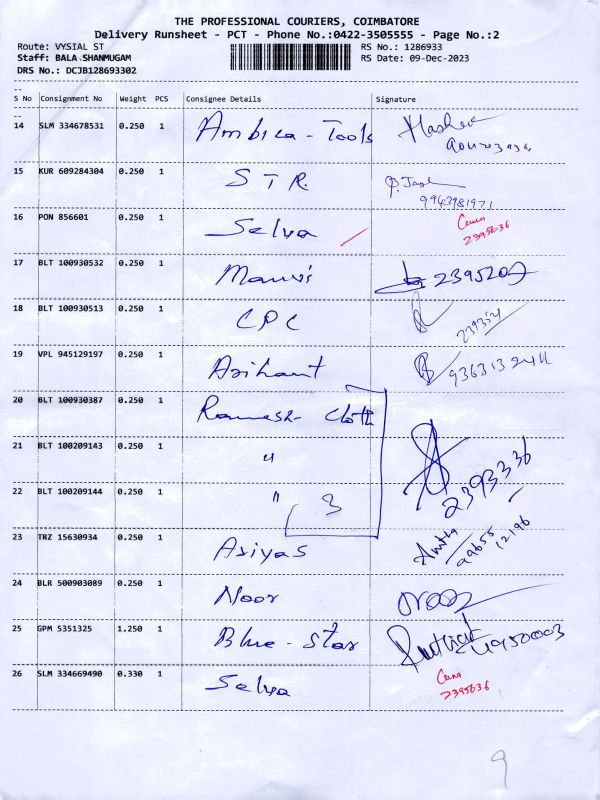 THE PROFESSIONAL COURIERS, COIMBATORE
Delivery Runsheet - PCT - Phone No.:0422-3505555 - Page No.:2
Route: VYSIAL ST RS No.: 1286933
Staff: BALA SHANMUGAM RS Date: 09-Dec-2023
DRS No.: DCJB128693302
S No Consignment No Weight PCS Consignee Details Signature
14 SLM 334678531 0.250 1 Ambica - Tools
15 KUR 609284304 0.250 1 STR
9943981971
16 PON 856601 0.250 1 Selva
2395636
17 BLT 100930532 0.250 1
18 BLT 100930513 0.250 1 CPC
19 VPL 945129197 0.250 1 Arihant
20 BLT 100930387 0.250 1 Ramesh Cloth
21 BLT 100209143 0.250 1 "
22 BLT 100209144 0.250 1 " 3
2393336
23 TRZ 15630934 0.250 1 Asiyas
99655 12196
24 BLR 500903089 0.250 1 Noor
25 GPM 5351325 1.250 1 Blue - Star
26 SLM 334669490 0.330 1 Selva
2395636
9